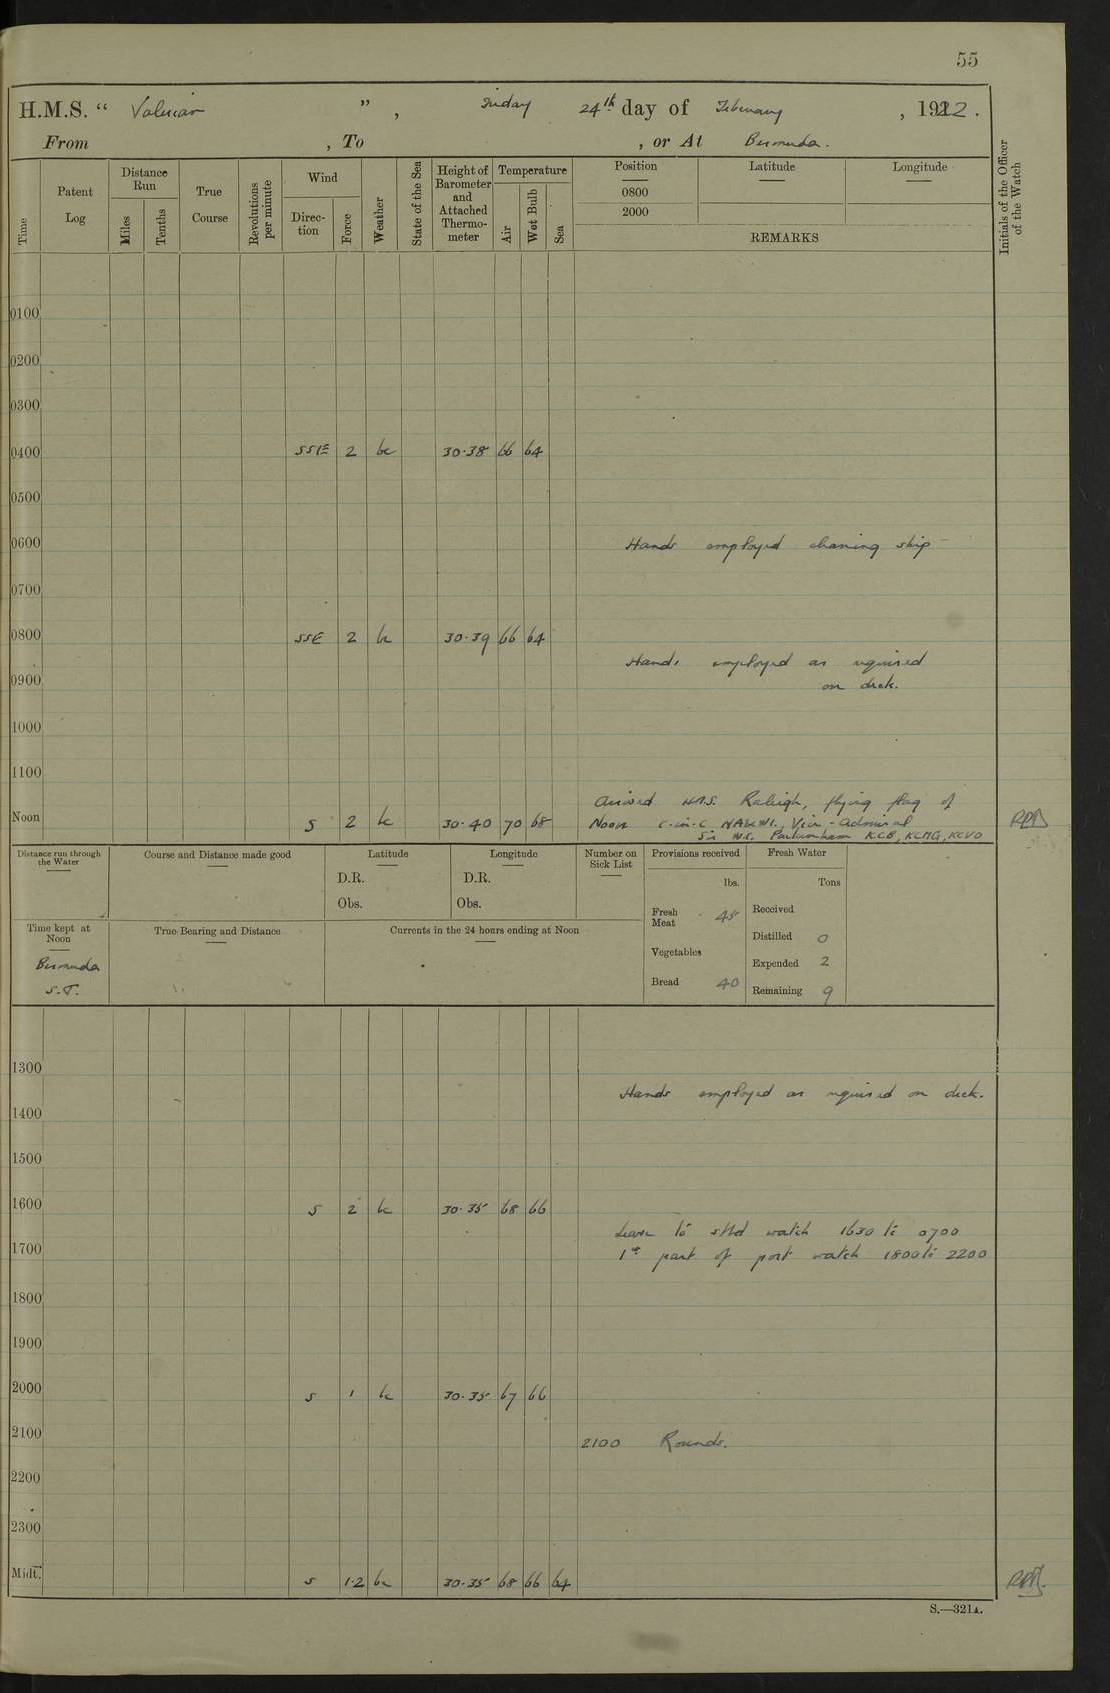 55
H.M.S. “ Valerian ” , Friday 24th day of February , 1922 .
From , To , or At Bermuda .
Time
Patent Log
Distance Run
Miles
Tenths
True Course
Revolutions per minute
Wind
Direc-tion
Force
Weather
State of the Sea
Height of Barometer and Attached Thermo-meter
Temperature
Air
Wet Bulb
Sea
Position
0800
2000
Latitude
Longitude
REMARKS
Initials of the Officer of the Watch
0100
0200
0300
0400 SSE 2 bc 30.38 66 64
0500
0600 Hands employed cleaning ship
0700
0800 SSE 2 bc 30.39 66 64
Hands employed as required
0900 on deck.
1000
1100
Arrived H.M.S. Raleigh, flying flag of
Noon S 2 bc 30.40 70 68 Noon C-in-C NA&WI., Vice-Admiral
Sir W.C. Pakenham KCB, KCMG, KCVO
Distance run through the Water
Course and Distance made good
Latitude
D.R.
Obs.
Longitude
D.R.
Obs.
Number on Sick List
Provisions received
lbs.
Fresh Meat 45
Vegetables
Bread 40
Fresh Water
Tons
Received
Distilled 0
Expended 2
Remaining 9
Time kept at Noon
Bermuda
S.T.
True Bearing and Distance
Currents in the 24 hours ending at Noon
1300
Hands employed as required on deck.
1400
1500
1600 S 2 bc 30.35 68 66
Leave to stbd watch 1630 to 0700
1700 1st part of port watch 1800 to 2200
1800
1900
2000 S 1 bc 30.35 67 66
2100 2100 Rounds.
2200
2300
Midt. S 1.2 bc 30.35 68 66 64
S.—321A.